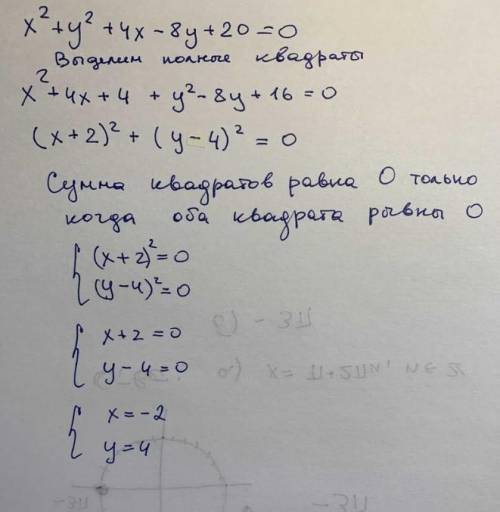 x² + y² + 4x - 8y + 20 = 0
Выделим полные квадраты
x² + 4x + 4 + y² - 8y + 16 = 0
(x + 2)² + (y - 4)² = 0
Сумма квадратов равна 0 только
когда оба квадрата рывны 0
(x + 2)² = 0
(y - 4)² = 0
x + 2 = 0
y - 4 = 0
x = -2
y = 4